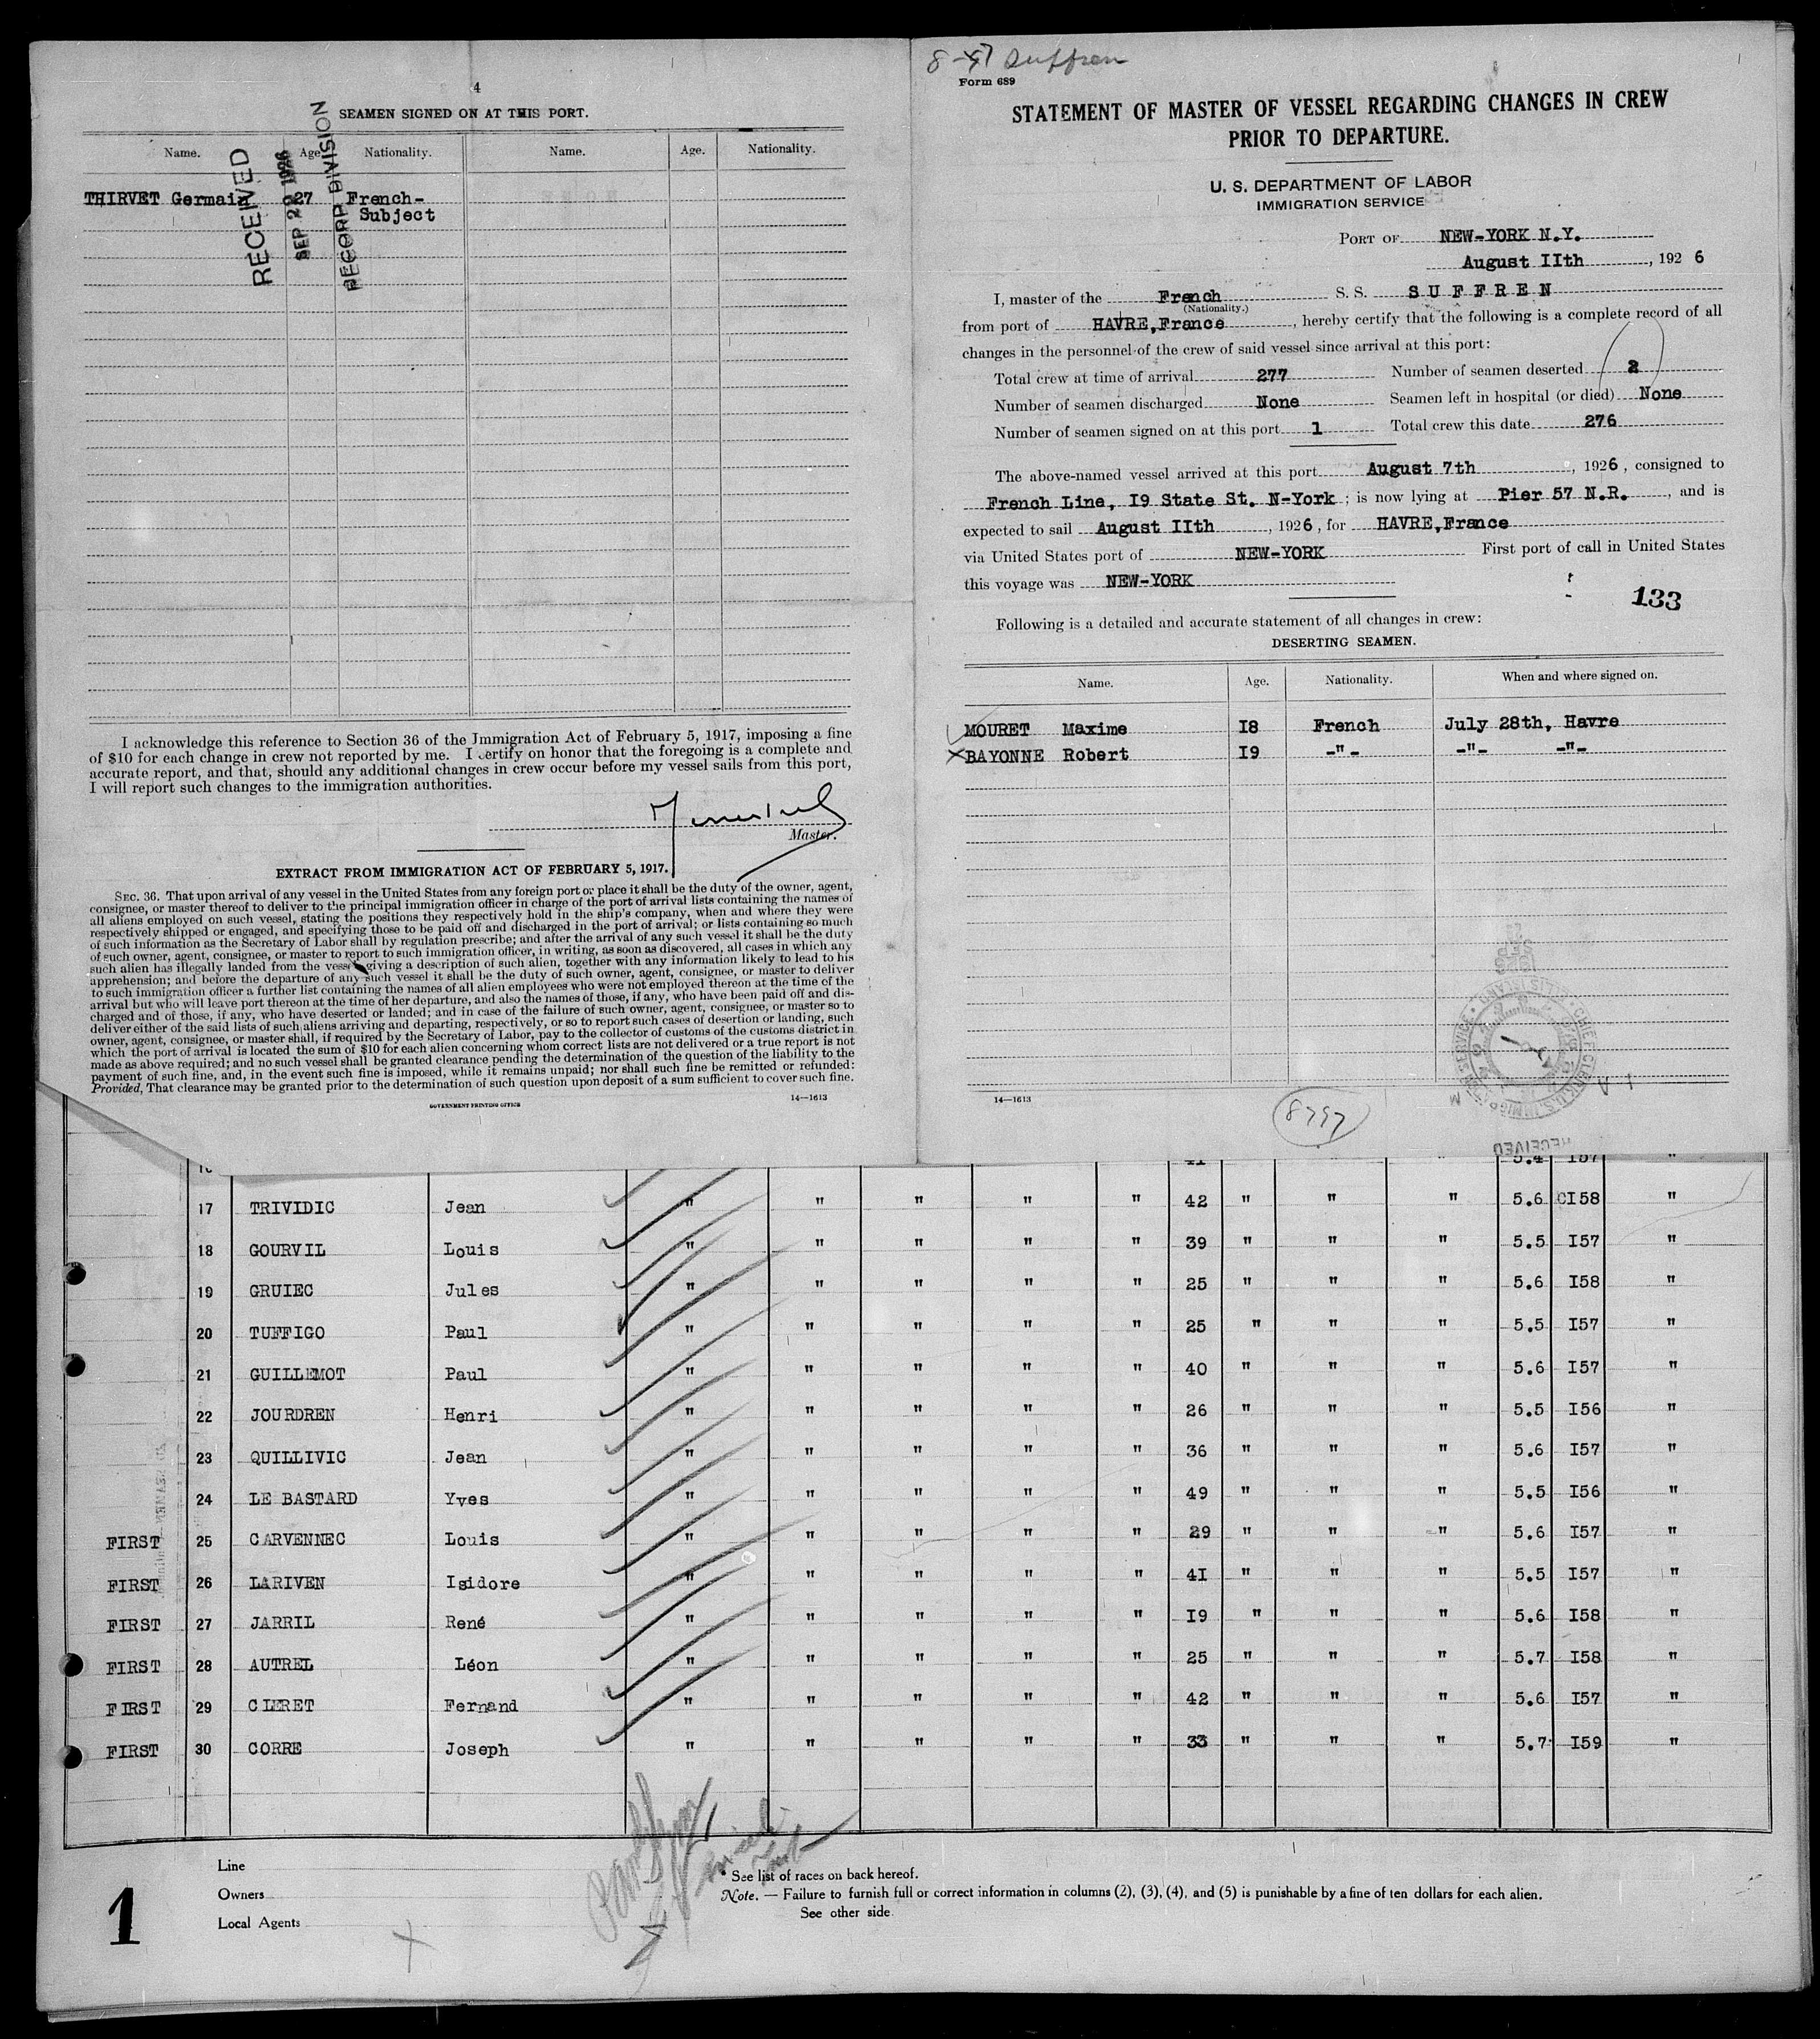 4
SEAMEN SIGNED ON AT THIS PORT.
Name. Age. Nationality. Name. Age. Nationality.
THIRVET Germain 27 French-
Subject
RECEIVED
SEP 1926
RECORD DIVISION
I acknowledge this reference to Section 36 of the Immigration Act of February 5, 1917, imposing a fine
of $10 for each change in crew not reported by me. I certify on honor that the foregoing is a complete and
accurate report, and that, should any additional changes in crew occur before my vessel sails from this port,
I will report such changes to the immigration authorities.
Master.
EXTRACT FROM IMMIGRATION ACT OF FEBRUARY 5, 1917.
SEC. 36. That upon arrival of any vessel in the United States from any foreign port or place it shall be the duty of the owner, agent,
consignee, or master thereof to deliver to the principal immigration officer in charge of the port of arrival lists containing the names of
all aliens employed on such vessel, stating the positions they respectively hold in the ship's company, when and where they were
respectively shipped or engaged, and specifying those to be paid off and discharged in the port of arrival; or lists containing so much
of such information as the Secretary of Labor shall by regulation prescribe; and after the arrival of any such vessel it shall be the duty
of such owner, agent, consignee, or master to report to such immigration officer, in writing, as soon as discovered, all cases in which any
such alien has illegally landed from the vessel giving a description of such alien, together with any information likely to lead to his
apprehension; and before the departure of any such vessel it shall be the duty of such owner, agent, consignee, or master to deliver
to such immigration officer a further list containing the names of all alien employees who were not employed thereon at the time of the
arrival but who will leave port thereon at the time of her departure, and also the names of those, if any, who have been paid off and dis-
charged and of those, if any, who have deserted or landed; and in case of the failure of such owner, agent, consignee, or master so to
deliver either of the said lists of such aliens arriving and departing, respectively, or so to report such cases of desertion or landing, such
owner, agent, consignee, or master shall, if required by the Secretary of Labor, pay to the collector of customs of the customs district in
which the port of arrival is located the sum of $10 for each alien concerning whom correct lists are not delivered or a true report is not
made as above required; and no such vessel shall be granted clearance pending the determination of the question of the liability to the
payment of such fine, and, in the event such fine is imposed, while it remains unpaid; nor shall such fine be remitted or refunded:
Provided, That clearance may be granted prior to the determination of such question upon deposit of a sum sufficient to cover such fine.
GOVERNMENT PRINTING OFFICE
14—1613
Suffren
Form 689
STATEMENT OF MASTER OF VESSEL REGARDING CHANGES IN CREW
PRIOR TO DEPARTURE.
U. S. DEPARTMENT OF LABOR
IMMIGRATION SERVICE
PORT OF NEW-YORK N.Y.
August IIth , 192 6
I, master of the French S. S. S U F F R E N
(Nationality.)
from port of HAVRE,France , hereby certify that the following is a complete record of all
changes in the personnel of the crew of said vessel since arrival at this port:
Total crew at time of arrival 277 Number of seamen deserted 2
Number of seamen discharged None Seamen left in hospital (or died) None
Number of seamen signed on at this port 1 Total crew this date 276
The above-named vessel arrived at this port August 7th , 1926 , consigned to
French Line, I9 State St. N-York ; is now lying at Pier 57 N.R. , and is
expected to sail August IIth , 1926 , for HAVRE,France
via United States port of NEW-YORK First port of call in United States
this voyage was NEW-YORK
133
Following is a detailed and accurate statement of all changes in crew:
DESERTING SEAMEN.
Name. Age. Nationality. When and where signed on.
MOURET Maxime I8 French July 28th, Havre
BAYONNE Robert I9 -"- -"- -"-
14—1613
8797
RECEIVED
16 41 " 5.4 I57 "
17 TRIVIDIC Jean " " " " " 42 " " " 5.6 CI58 "
18 GOURVIL Louis " " " " " 39 " " " 5.5 I57 "
19 GRUIEC Jules " " " " " 25 " " " 5.6 I58 "
20 TUFFIGO Paul " " " " " 25 " " " 5.5 I57 "
21 GUILLEMOT Paul " " " " " 40 " " " 5.6 I57 "
22 JOURDREN Henri " " " " " 26 " " " 5.5 I56 "
23 QUILLIVIC Jean " " " " " 36 " " " 5.6 I57 "
24 LE BASTARD Yves " " " " " 49 " " " 5.5 I56 "
FIRST 25 CARVENNEC Louis " " " " " 29 " " " 5.6 I57 "
FIRST 26 LARIVEN Isidore " " " " " 4I " " " 5.5 I57 "
FIRST 27 JARRIL René " " " " " I9 " " " 5.6 I58 "
FIRST 28 AUTREL Léon " " " " " 25 " " " 5.7 I58 "
FIRST 29 CLERET Fernand " " " " " 42 " " " 5.6 I57 "
FIRST 30 CORRE Joseph " " " " " 33 " " " 5.7 I59 "
Line
Owners
Local Agents
1
* See list of races on back hereof.
Note. — Failure to furnish full or correct information in columns (2), (3), (4), and (5) is punishable by a fine of ten dollars for each alien.
See other side.